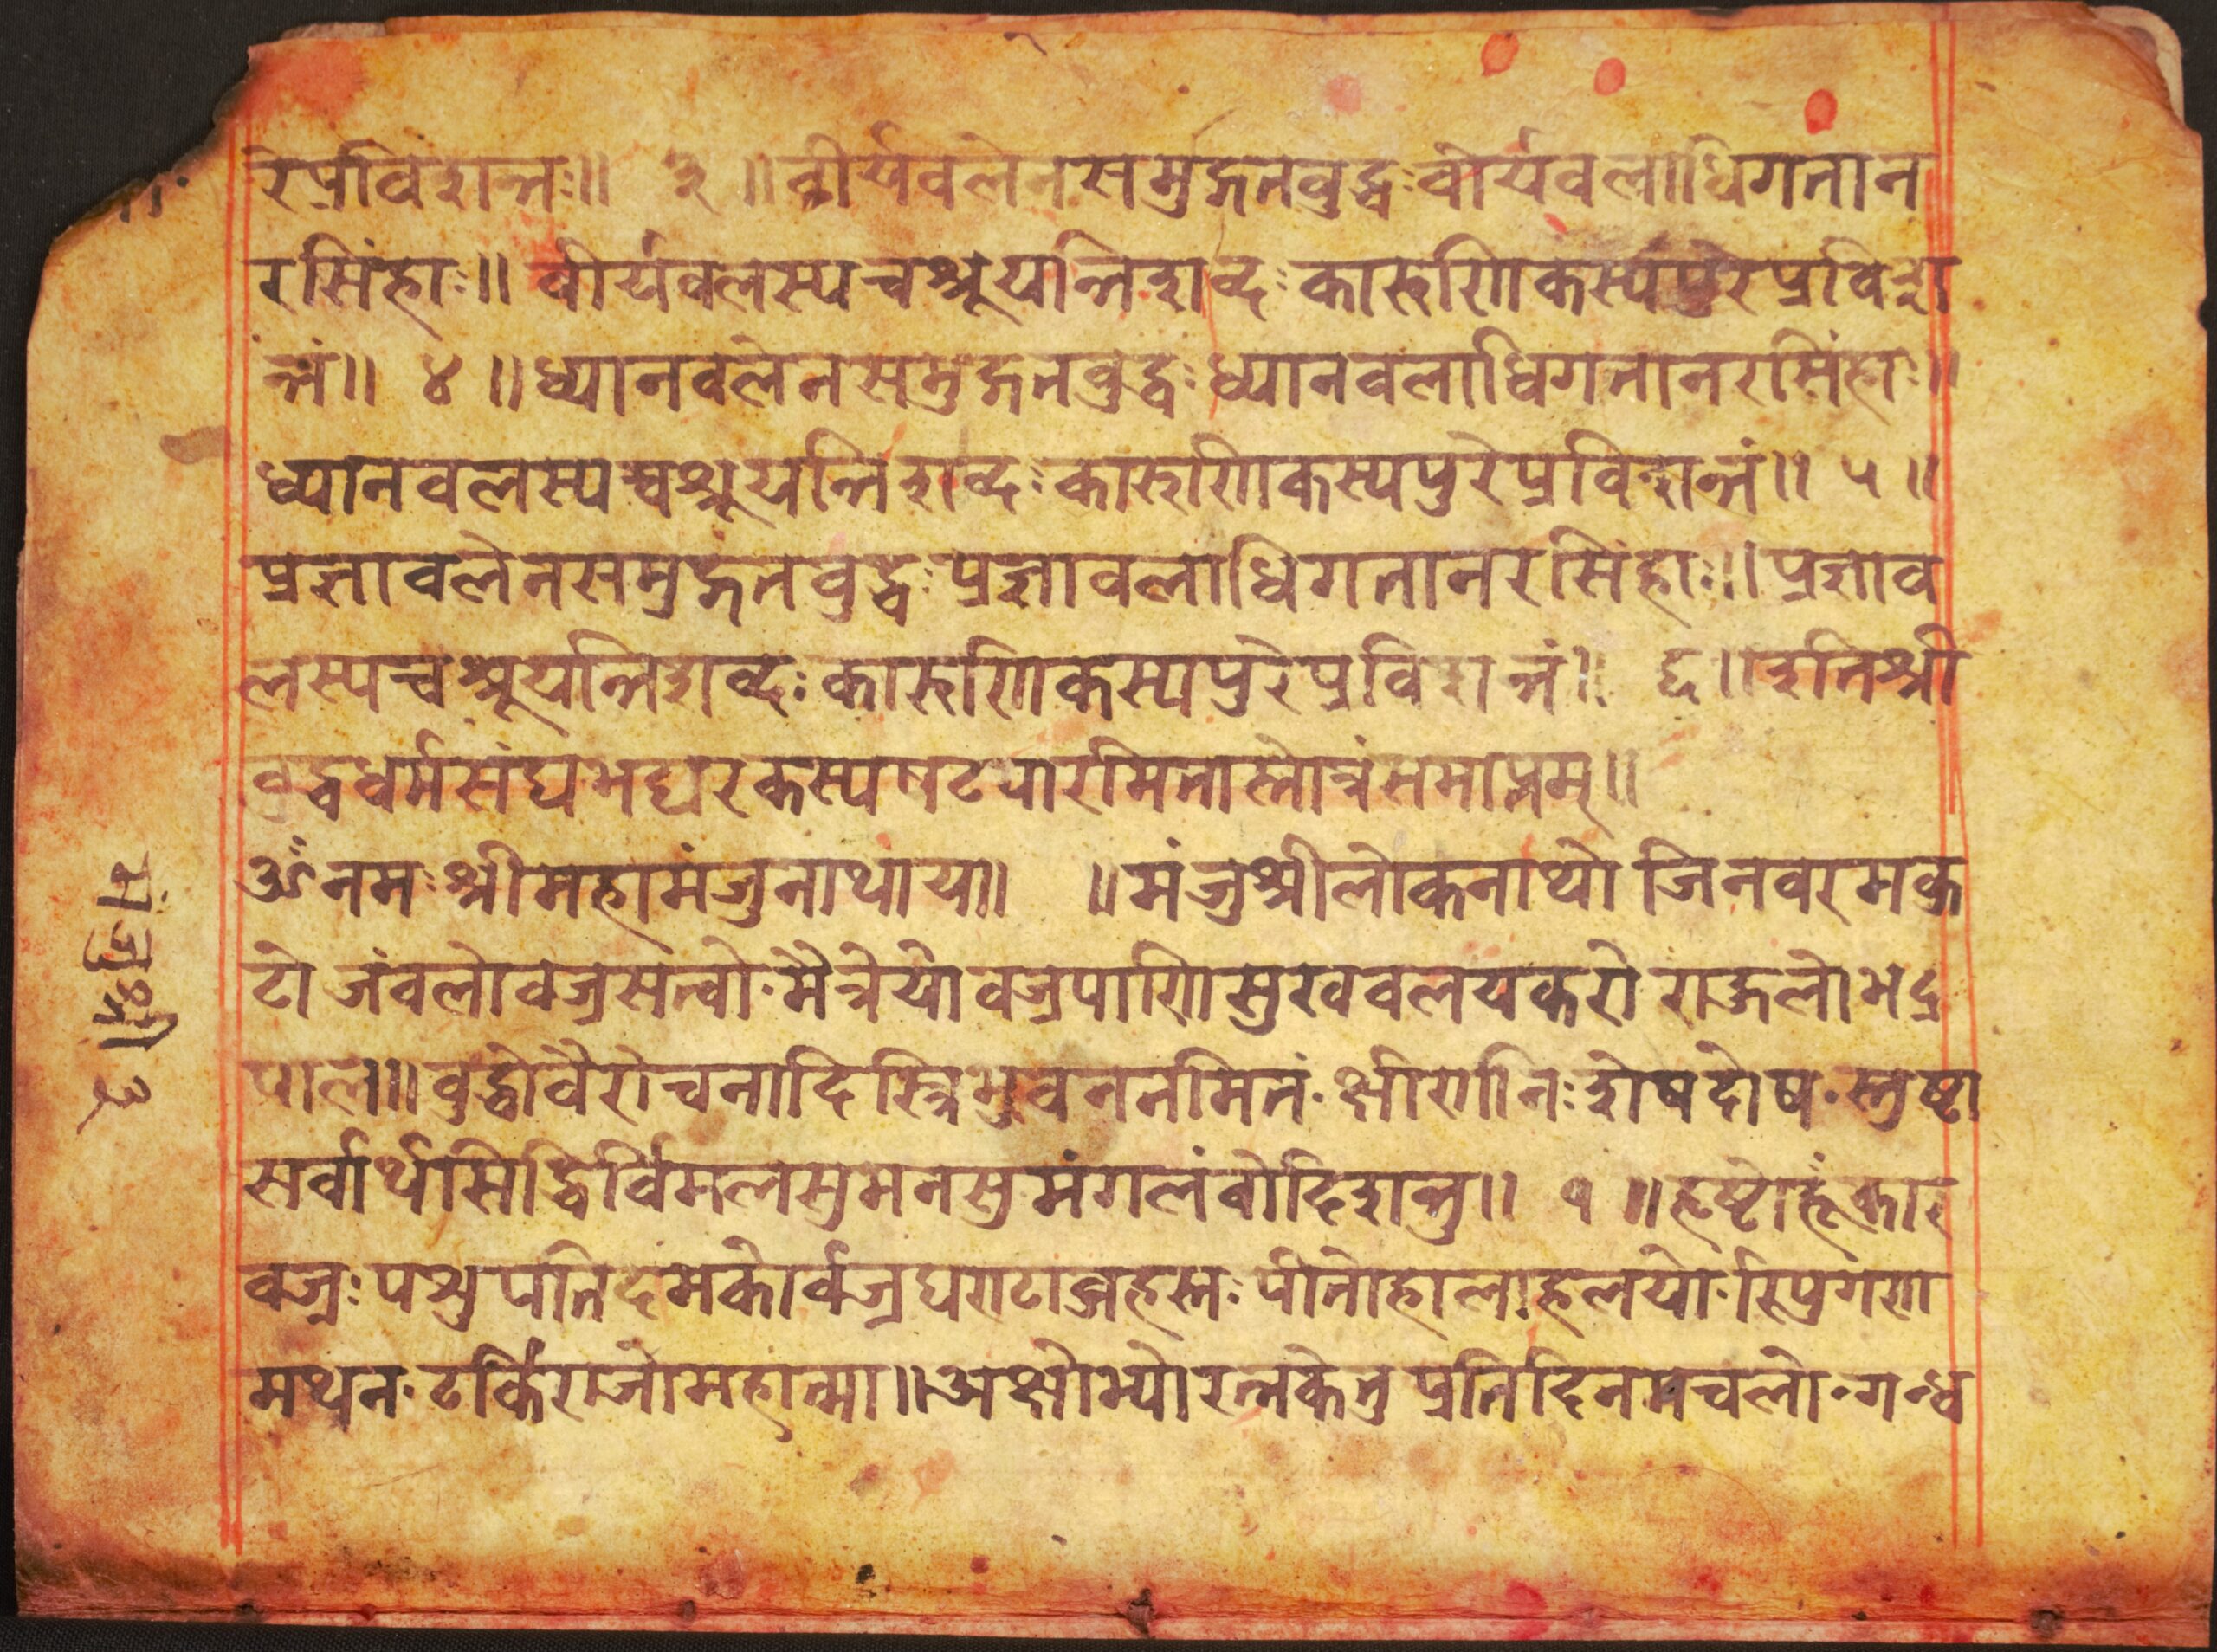 रेप्रविशन्तः॥ ३ ॥वीर्यवलेनसर्मुद्गतवुद्धःवीर्यवलाधिगतान
रसिंहाः॥ वीर्यवलस्यचश्रूयन्तिशव्दःकारुणिकस्यपुरेप्रविश
न्तं॥ ४ ॥ध्यानवलेनसमुद्गतवुद्धःध्यानवलाधिगतानरसिंहाः॥
ध्यानवलस्यचश्रूयन्तिशव्दःकारुणिकस्यपुरेप्रविशन्तं॥ ५ ॥
प्रज्ञावलेनसमुद्गतवुद्धःप्रज्ञावलाधिगतानरसिंहाः॥प्रज्ञाव
लस्यचश्रूयन्तिशव्दःकारुणिकस्यपुरेप्रविशन्तं॥ ६ ॥इतिश्री
वुद्धधर्मसंघभट्टारकस्यषट्पारमितास्तोत्रंसमाप्तम्॥
ॐनमःश्रीमहामंजुनाथाय॥ ॥मंजुश्रीलोकनाथो जिनवरमकु
टो जंवलोवज्रसत्वोःमैत्रेयोवज्रपाणिसुखवलयकरो राङलोभद्र
पाल॥वुद्धोवैरोचनादिस्त्रिभुवननमितंःक्षीणनिःशेषदोषःस्तुष्टा
सर्वार्थसिद्धिर्विमलसुमनसुमंगलंवोदिशन्तु॥ १ ॥हृष्टोहूंकार
वज्रःपशुपतिदमकोर्वज्रघण्टाव्जहस्तःपीतोहालाहलयोःरिपुगण
मथनःटर्किराजोमहात्मा॥अक्षोभ्योरत्नकेतुप्रतिदिनमचलोन्गन्ध
मंजुश्री ३